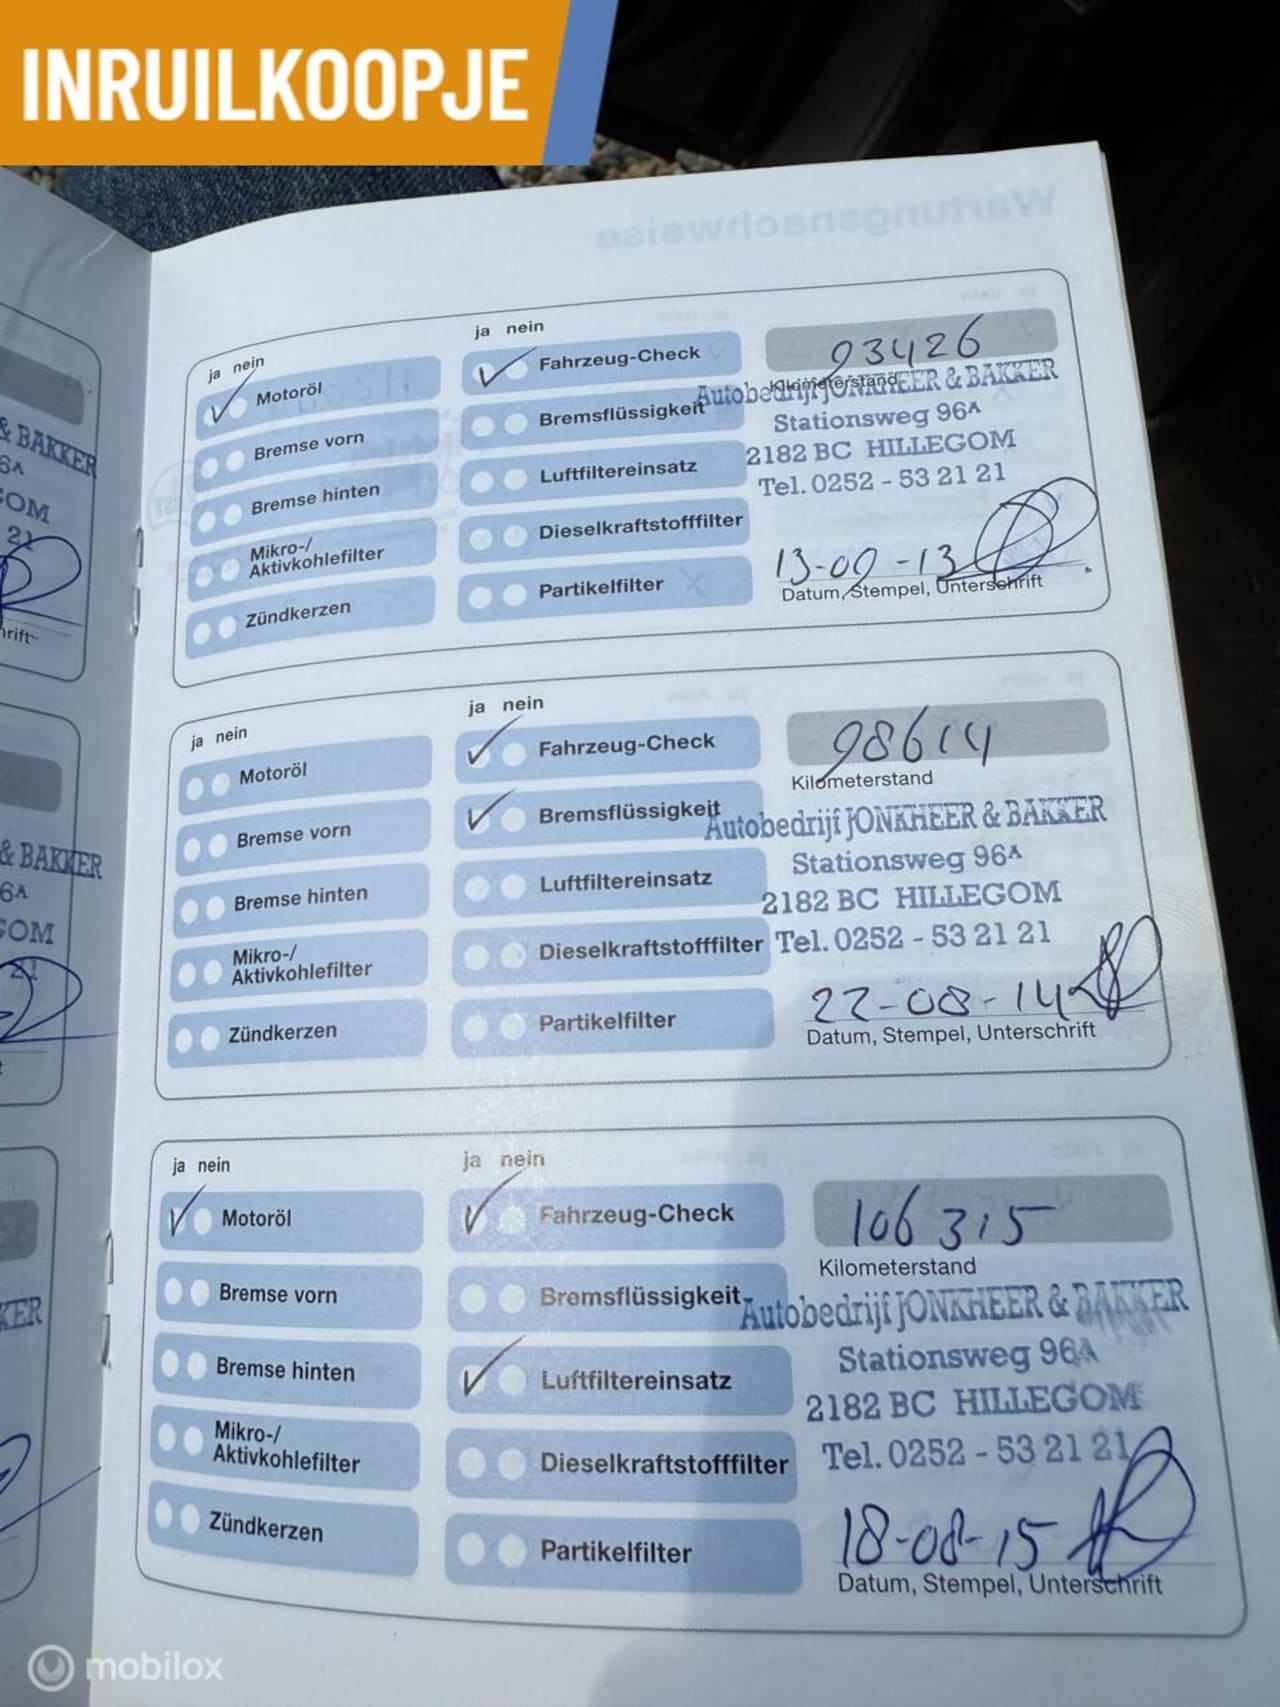 INRUILKOOPJE
Wartungsnachweise
ja nein
ja nein
Motoröl
Fahrzeug-Check
93426
Kilometerstand
Bremse vorn
Bremsflüssigkeit
Autobedrijf JONKHEER & BAKKER
Stationsweg 96A
Bremse hinten
Luftfiltereinsatz
2182 BC HILLEGOM
Tel. 0252 - 53 21 21
Mikro-/
Aktivkohlefilter
Dieselkraftstofffilter
Zündkerzen
Partikelfilter
13-09-13
Datum, Stempel, Unterschrift
ja nein
ja nein
Motoröl
Fahrzeug-Check
98614
Kilometerstand
Bremse vorn
Bremsflüssigkeit
Autobedrijf JONKHEER & BAKKER
Stationsweg 96A
Bremse hinten
Luftfiltereinsatz
2182 BC HILLEGOM
Mikro-/
Aktivkohlefilter
Dieselkraftstofffilter
Tel. 0252 - 53 21 21
Zündkerzen
Partikelfilter
22-08-14
Datum, Stempel, Unterschrift
ja nein
ja nein
Motoröl
Fahrzeug-Check
106315
Kilometerstand
Bremse vorn
Bremsflüssigkeit
Autobedrijf JONKHEER & BAKKER
Stationsweg 96A
Bremse hinten
Luftfiltereinsatz
2182 BC HILLEGOM
Mikro-/
Aktivkohlefilter
Dieselkraftstofffilter
Tel. 0252 - 53 21 21
Zündkerzen
Partikelfilter
18-08-15
Datum, Stempel, Unterschrift
& BAKKER
& BAKKER
mobilox